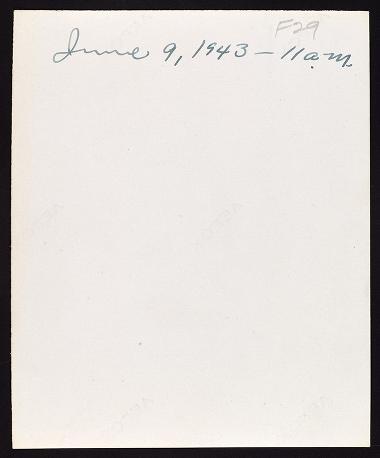 F29
June 9, 1943 – 11 a.m.